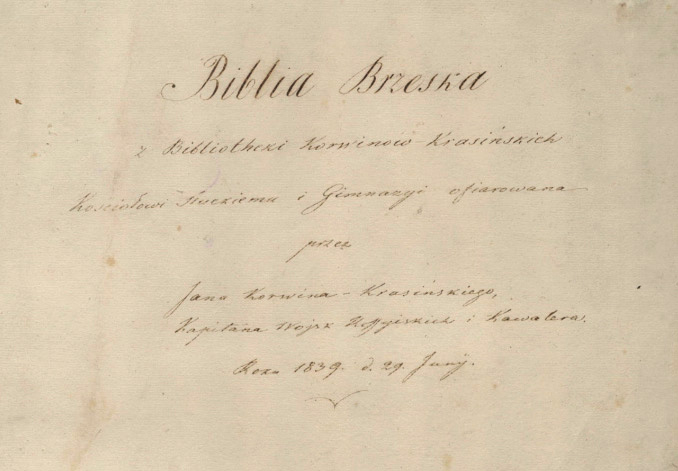 Biblia Brzeska
z Bibliotheki Korwinow-Krasińskich
Kościołowi Słuckiemu i Gimnazyi ofiarowana
przez
Jana Korwina-Krasińskiego,
Kapitana Wojsk Rossyiskich i Kawalera.
Roku 1839. d. 29. Junij.